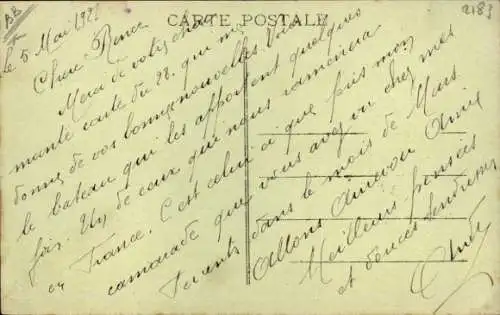 BB
CARTE POSTALE
2183
le 5 Mai
Chère Renée
Merci de votre chère
carte du 28. qui me
donne de vos bonnes nouvelles. Voici
le bateau qui les apportent quelques
fois. Un de ceux qui nous ramènera
en France. C'est celui ci que pris mon
camarade que vous avez vu chez mes
Parents dans le mois de Mars
Allons Amie
Meilleures pensées
et douces tendresses